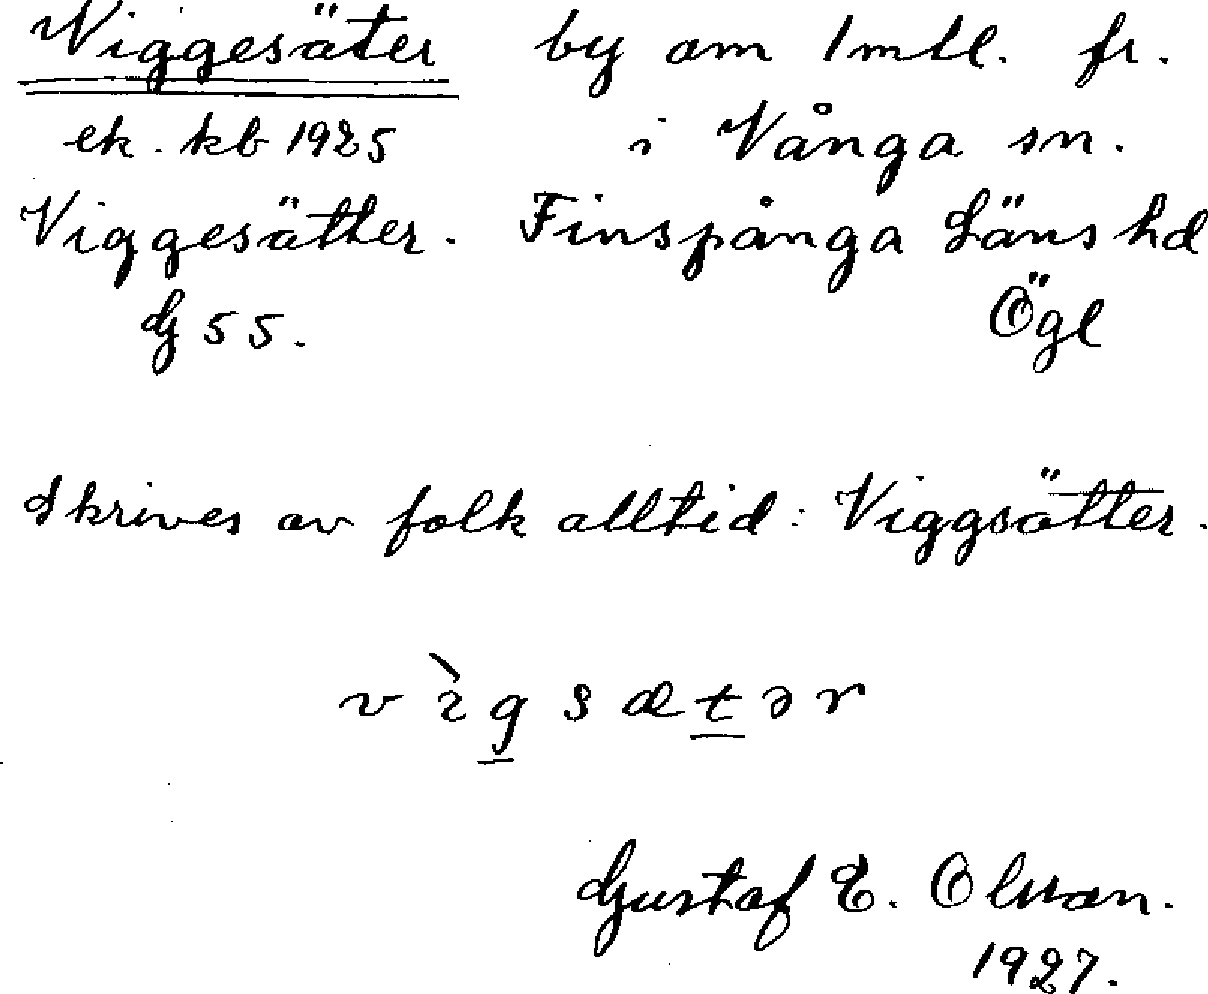 Viggesäter by om 1 mtl. fr.
ek. kb 1925 i Vånga sn.
Viggesätter. Finspånga Läns hd
G 55. Ögl
Skrives av folk alltid: Viggsätter.
vìgsætər
Gustaf E. Olsson.
1927.